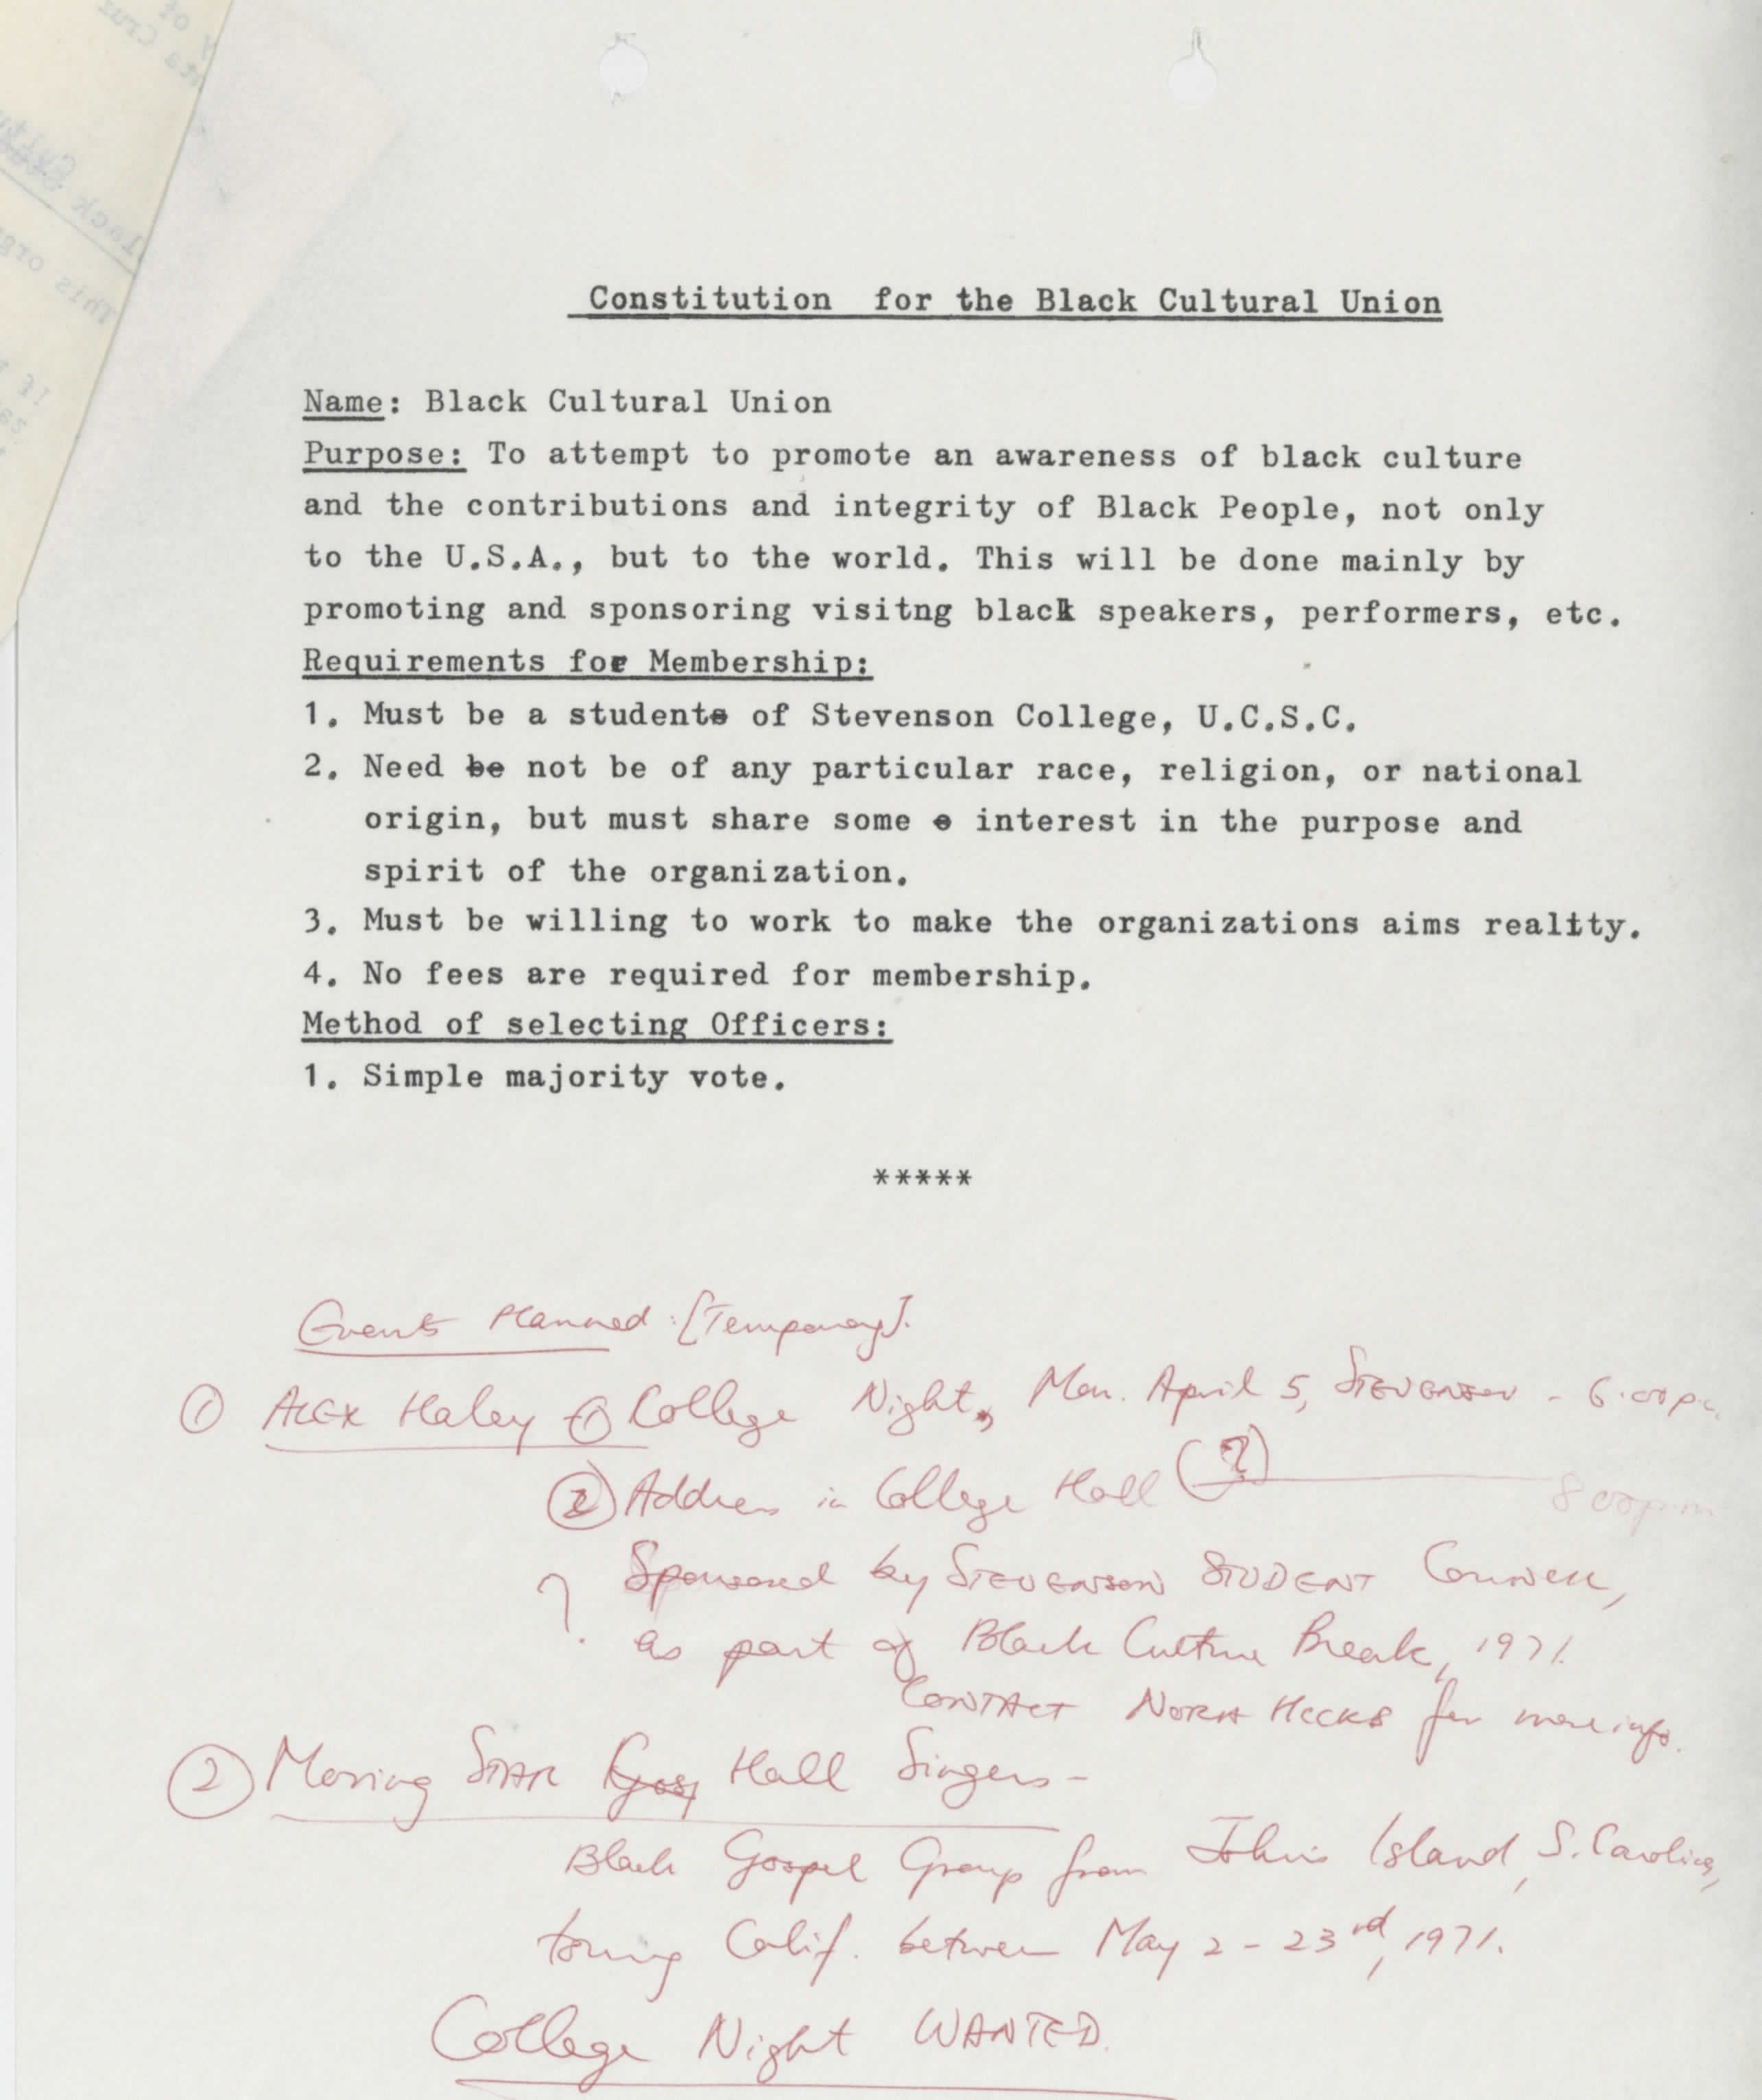 Constitution for the Black Cultural Union
Name: Black Cultural Union
Purpose: To attempt to promote an awareness of black culture
and the contributions and integrity of Black People, not only
to the U.S.A., but to the world. This will be done mainly by
promoting and sponsoring visitng black speakers, performers, etc.
Requirements for Membership:
1. Must be a students of Stevenson College, U.C.S.C.
2. Need be not be of any particular race, religion, or national
origin, but must share some e interest in the purpose and
spirit of the organization.
3. Must be willing to work to make the organizations aims reality.
4. No fees are required for membership.
Method of selecting Officers:
1. Simple majority vote.
*****
Events Planned: [Temporary].
① Alex Haley ① College Night, Mon. April 5, Stevenson - 6:00 p.m.
② Address in College Hall (?) 8 00 p.m.
? Sponsored by Stevenson STUDENT Council,
as part of Black Culture Break, 1971.
CONTACT NORA HICKS for more info.
② Moving STAR Gosp Hall Singers -
Black Gospel Group from Johns Island, S. Carolina,
touring Calif. between May 2 - 23rd, 1971.
College Night WANTED.